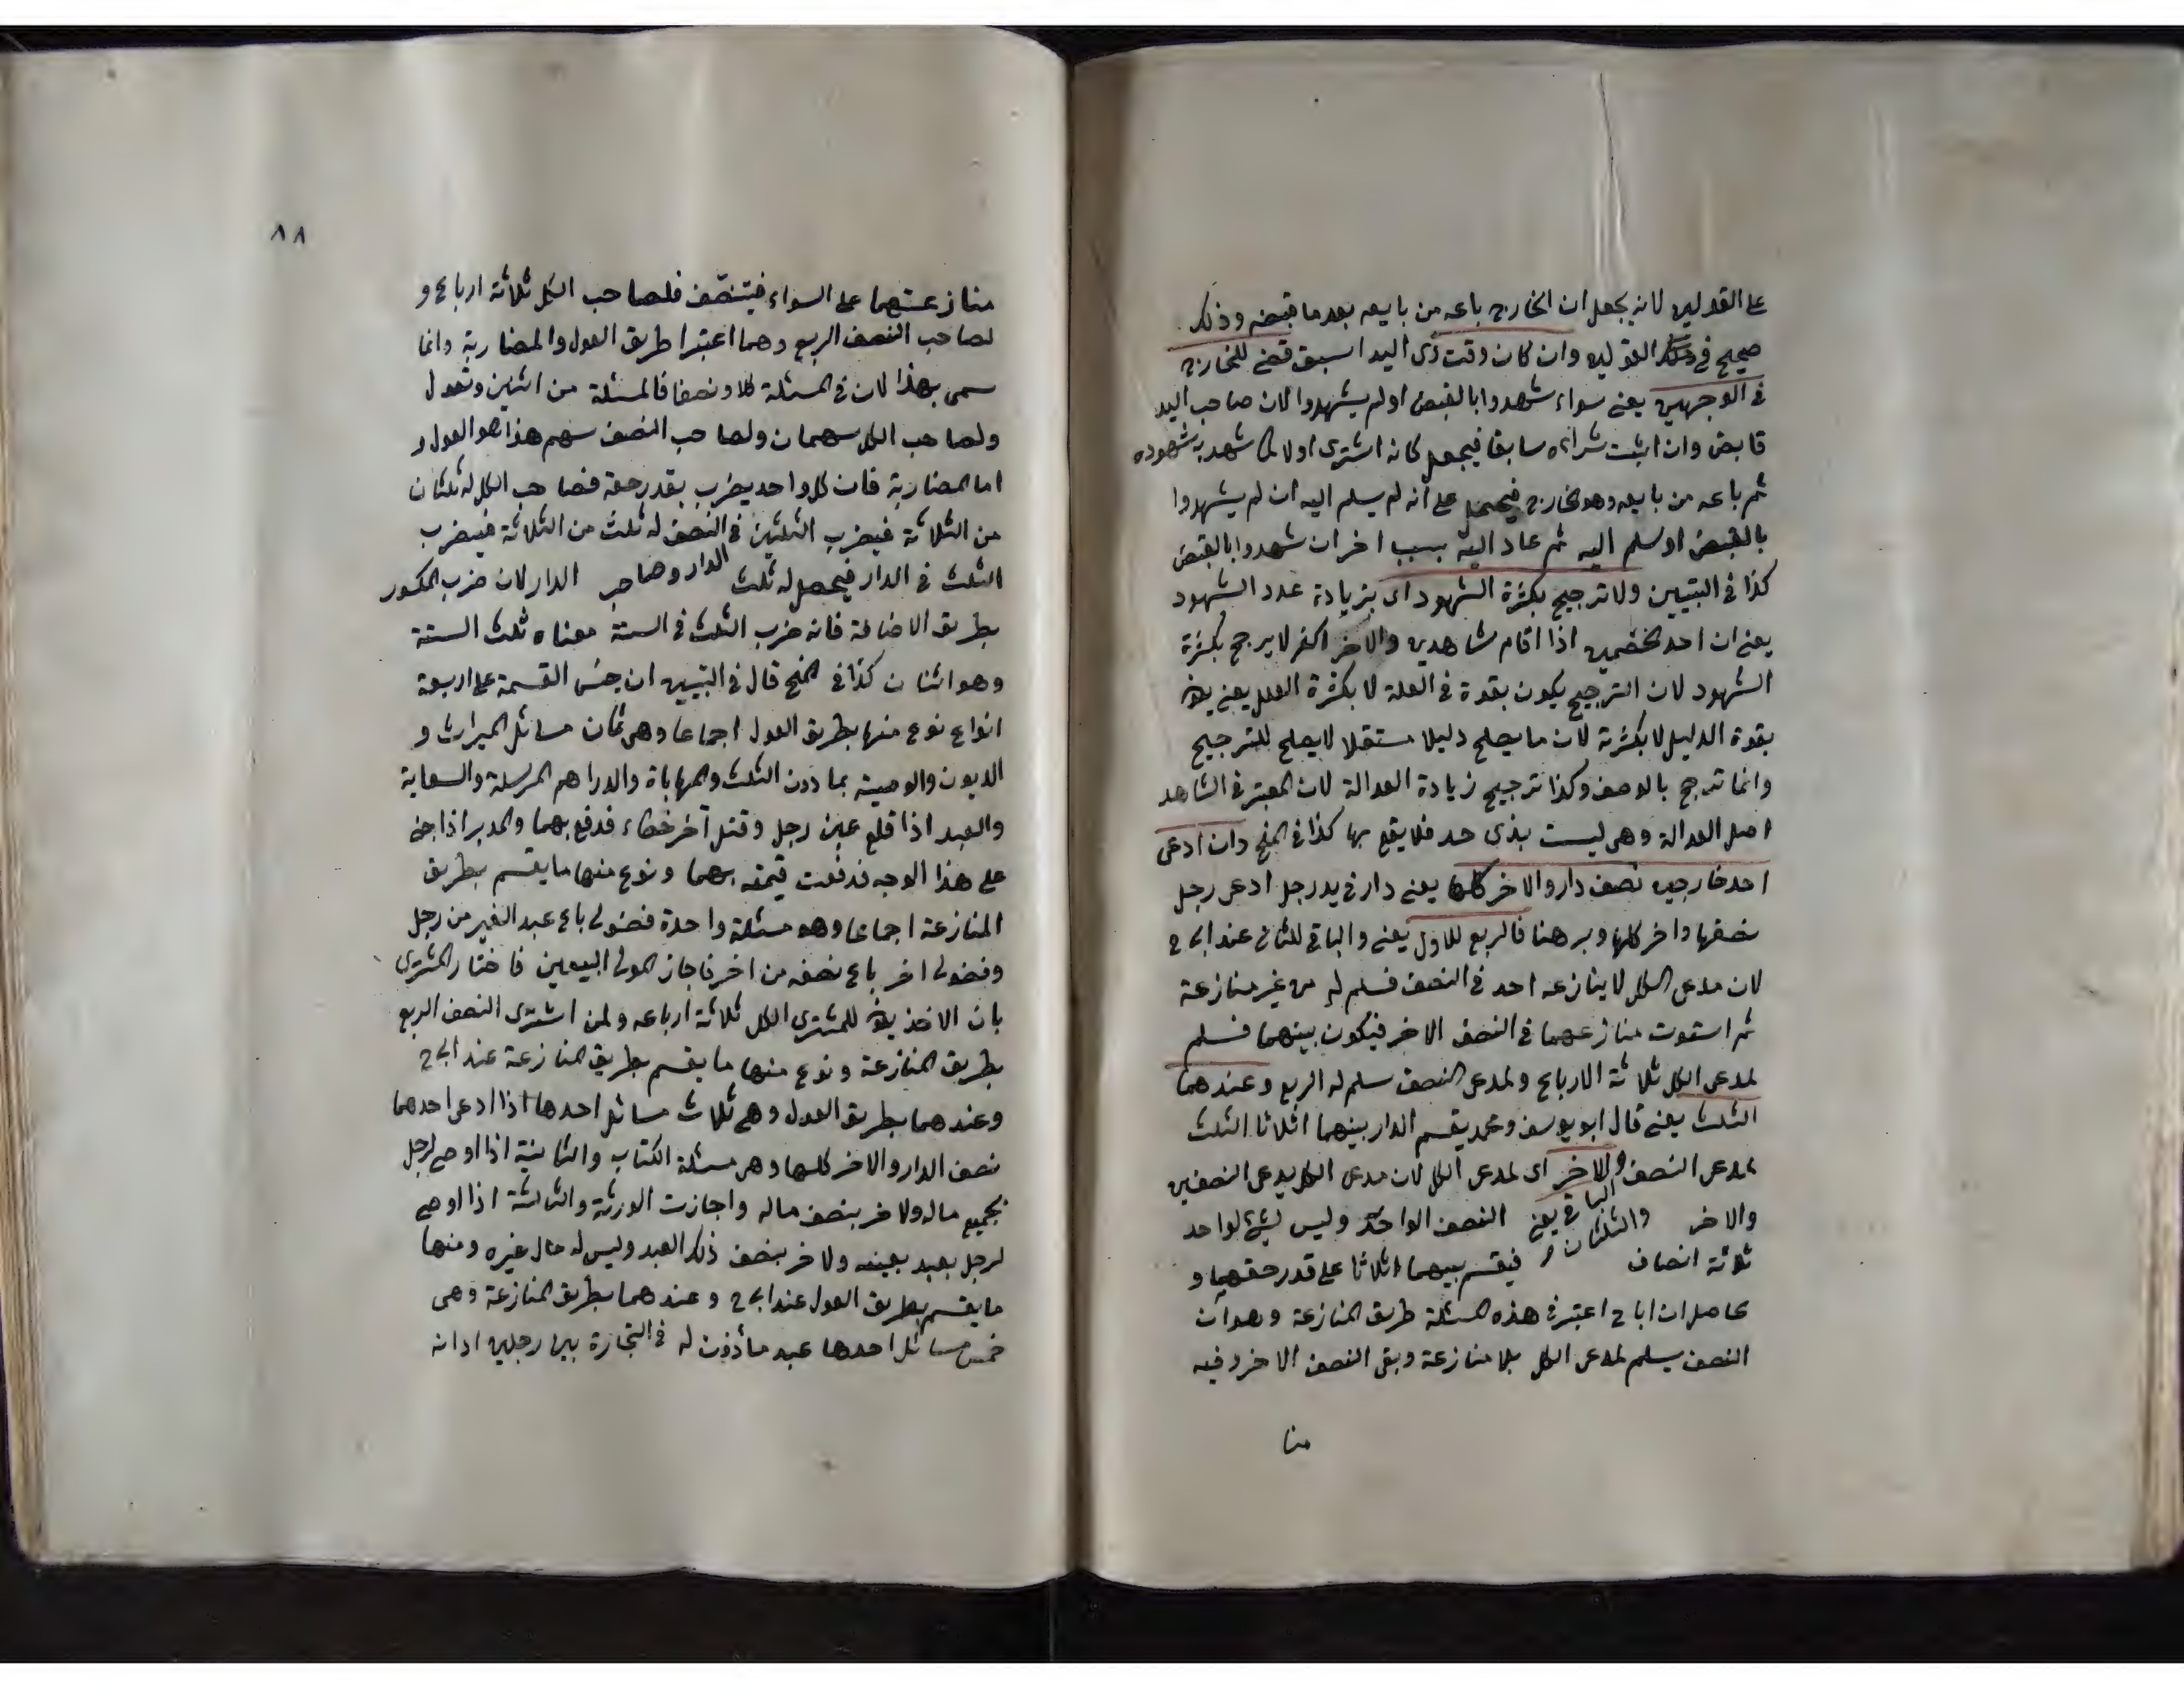 على القولين لانه يجعل ان الخارج باعه من بايعه بعد ما قبضه وذلك
صحيح في القولين وان كان وقت ذى اليد اسبق قضى للخارج
في الوجهين يعنى سواء شهدوا بالقبض او لم يشهدوا لان صاحب اليد
قابض وان اثبت شراءه سابقا فيجعل كانه اشترى اولا كما شهد به شهوده
ثم باعه من بايعه وهو الخارج فيحمل على أنه لم يسلم اليه ان لم يشهدوا
بالقبض او سلم اليه ثم عاد اليه بسبب اخر ان شهدوا بالقبض
كذا في التبيين ولا ترجيح بكثرة الشهود اى بزيادة عدد الشهود
يعنى ان احد الخصمين اذا اقام شاهدين والاخر اكثر لا يرجح بكثرة
الشهود لان الترجيح يكون بقوة في العلة لا بكثرة العلل يعنى
بقوة الدليل لا بكثرته لان ما يصلح دليلا مستقلا لا يصلح للترجيح
وانما ترجح بالوصف وكذا ترجيح زيادة العدالة لان المعتبر في الشاهد
اصل العدالة وهى ليست بذى حد فلا يقع بها كذا في المنح وان ادعى
احد خارجين نصف دار والاخر كلها يعنى دار في يد رجل ادعى رجل
نصفها واخر كلها وبرهنا فالربع للاول يعنى والباقى للثانى عند ابى ح
لان مدعى الكل لا ينازعه احد في النصف فسلم له من غير منازعة
ثم استوت منازعتهما في النصف الاخر فيكون بينهما فسلم
لمدعى الكل ثلاثة الارباع ولمدعى النصف سلم له الربع وعندهما
الثلث يعنى قال ابو يوسف ومحمد يقسم الدار بينهما اثلاثا الثلث
لمدعى النصف والاخر اى لمدعى الكل لان مدعى الكل يدعى النصفين
والاخر والثلثان الباقى يعنى النصف الواحد وليس لشئ لواحد
ثلاثة انصاف فيقسم بينهما اثلاثا على قدر حقهما و
حاصله ان ابا ح اعتبر في هذه المسئلة طريق المنازعة وهو ان
النصف يسلم لمدعى الكل بلا منازعة وبقى النصف الاخر وفيه
منا
٨٨
منازعتهما على السواء فيتنصّف فلصاحب الكل ثلاثة ارباع و
لصاحب النصف الربع وهما اعتبرا طريق العول والمضاربة وانما
سمى بهذا لان في المسئلة كلا ونصفا فالمسئلة من اثنين وتعول
ولصاحب الكل سهمان ولصاحب النصف سهم هذا هو العول و
اما المضاربة فان كل واحد يضرب بقدر حقه فصاحب الكل له ثلثان
من الثلاثة فيضرب الثلثين في النصف له ثلث من الثلاثة فيضرب
الثلث في الدار فيحصل له ثلث الدار وصاحب الدار لان ضرب الكسور
بطريق الاضافة فانه ضرب الثلث في الستة معناه ثلث الستة
وهو اثنان كذا في المنح قال في التبيين ان جنس القسمة على اربعة
انواع نوع منها بطريق العول اجماعا وهى ثمان مسائل الميراث و
الديون والوصية بما دون الثلث والمحاباة والدراهم المرسلة والسعاية
والعبد اذا قلع عين رجل وقتل آخر خطاء فدفع بهما والمدبر اذا جنى
على هذا الوجه فدفعت قيمته بهما ونوع منها ما يقسم بطريق
المنازعة اجماعا وهو مسئلة واحدة فضولى باع عبد الغير من رجل
وفضولى اخر باع نصفه من اخر فاجاز المولى البيعين فاختار المشترى
بان الاخذ للمشترى الكل ثلاثة ارباعه ولمن اشترى النصف الربع
بطريق المنازعة ونوع منها ما يقسم بطريق المنازعة عند ابى ح
وعندهما بطريق العول وهى ثلاث مسائل احدها اذا ادعى احدهما
نصف الدار والاخر كلها وهى مسئلة الكتاب والثانية اذا اوصى لرجل
بجميع ماله ولاخر بنصف ماله واجازت الورثة والثالثة اذا اوصى
لرجل بعبد بعينه ولاخر بنصف ذلك العبد وليس له مال غيره ومنها
ما يقسم بطريق العول عند ابى ح وعندهما بطريق المنازعة وهى
خمس مسائل احدها عبد مأذون له في التجارة بين رجلين ادانه